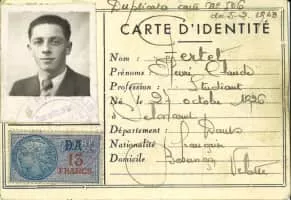 Duplicata carte N° 506
du 5-2-1943
CARTE D'IDENTITÉ
Nom :
Prénoms : Henri Claude
Profession : Etudiant
Né le 27 octobre 1926
à
Département : Doubs
Nationalité Française
Domicile
DA
13
FRANCS